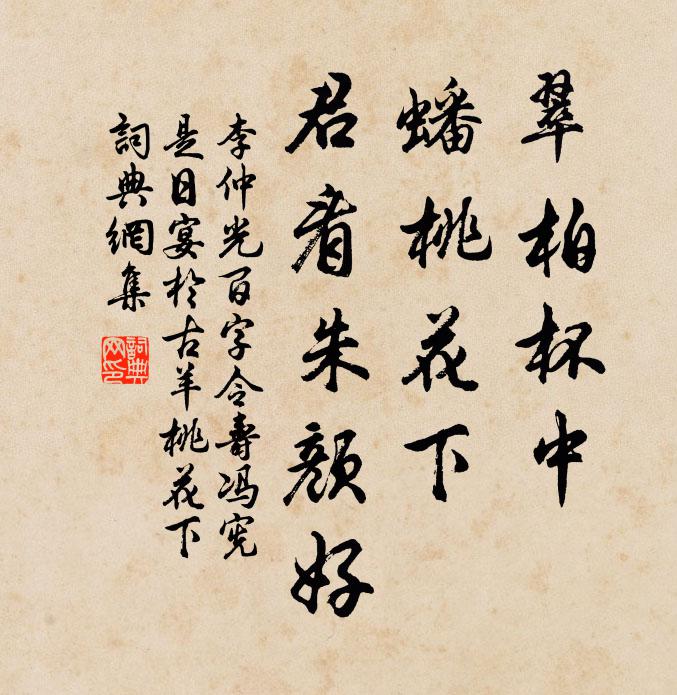 翠柏杯中
蟠桃花下
君看朱顏好
李仲光百字令壽馮宪
是日宴於古羊桃花下
詞典網集
詞典網印